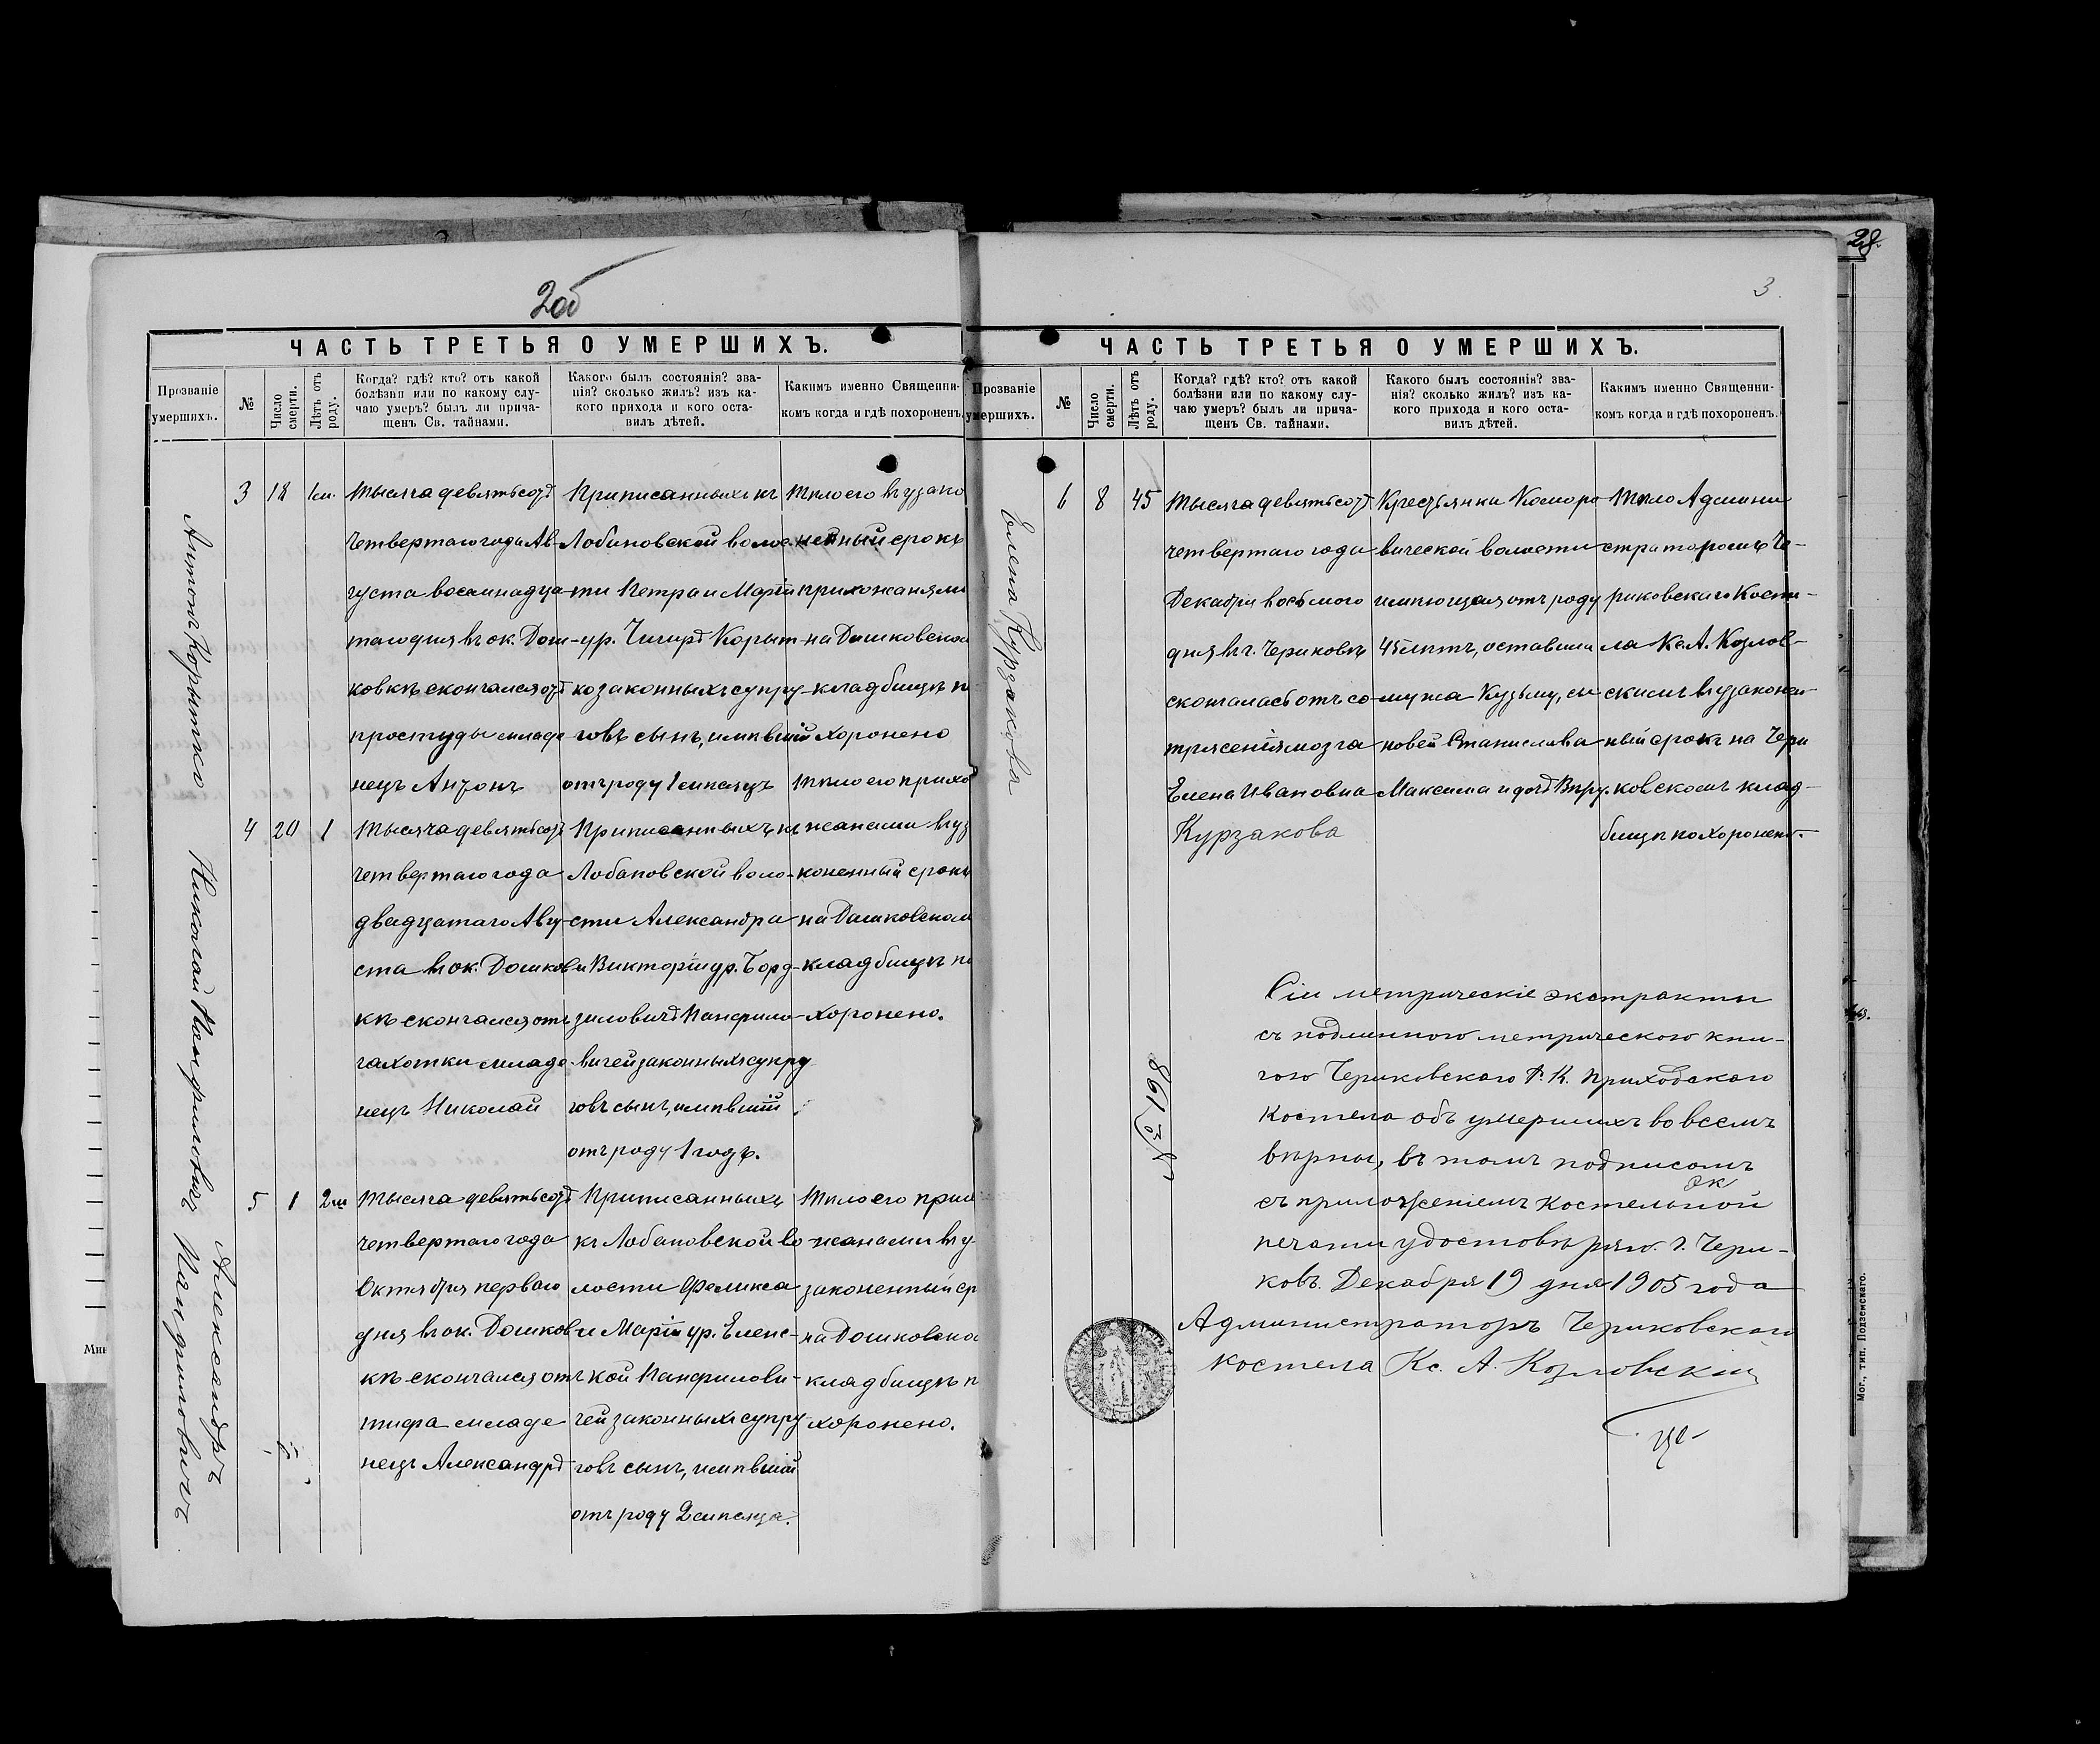 2об
ЧАСТЬ ТРЕТЬЯ О УМЕРШИХЪ.
Прозваніе умершихъ.
№
Число смерти.
Лѣтъ отъ роду.
Когда? гдѣ? кто? отъ какой
болѣзни или по какому слу-
чаю умеръ? былъ ли прича-
щенъ Св. тайнами.
Какого былъ состоянія? зва-
нія? сколько жилъ? изъ ка-
кого прихода и кого оста-
вилъ дѣтей.
Какимъ именно Священни-
комъ когда и гдѣ похороненъ.
Антонъ Корытко
3 18 1 м.
Тысяча девятьсотъ
четвертаго года Ав-
густа восемнадца-
таго дня въ ок. Дош-
ковкѣ скончался отъ
простуды младе
нецъ Антонъ
Приписанныхъ къ
Лобановской воло-
сти Петра и Маріи
ур. Чигиръ Корыт-
ко законныхъ супру-
говъ сынъ, имѣвшій
отъ роду 1 мѣсяцъ
Тѣло его въ узако
ненный срокъ
прихожанами
на Дашковском
кладбищѣ по
хоронено
Николай Панфиловичъ
4 20 1
Тысяча девятьсотъ
четвертаго года
двадцатаго Авгу-
ста въ ок. Дошков
кѣ скончался отъ
чахотки младе
нецъ Николай
Приписанныхъ къ
Лобановской воло-
сти Александра
и Викторіи ур. Борд-
зиловичъ Панфило-
вичей законныхъ супру
говъ сынъ, имѣвшій
отъ роду 1 годъ.
Тѣло его прихо
жанами въ уз
коненный срокъ
на Дашковском
кладбищѣ по
хоронено.
Александръ Панфиловичъ
5 1 2 м.
Тысяча девятьсотъ
четвертаго года
Октября перваго
дня въ ок. Дошков
кѣ скончался отъ
тифа младе
нецъ Александръ
Приписанныхъ
къ Лобановской во
лости Феликса
и Маріи ур. Еленс-
кой Панфилови-
чей законныхъ супру
говъ сынъ, имѣвшій
отъ роду 2 мѣсяца.
Тѣло его прихо
жанами въ у-
законенный ср
на Дошковско
кладбищѣ п
хоронено.
28.
3
ЧАСТЬ ТРЕТЬЯ О УМЕРШИХЪ.
Прозваніе умершихъ.
№
Число смерти.
Лѣтъ отъ роду.
Когда? гдѣ? кто? отъ какой
болѣзни или по какому слу-
чаю умеръ? былъ ли прича-
щенъ Св. тайнами.
Какого былъ состоянія? зва-
нія? сколько жилъ? изъ ка-
кого прихода и кого оста-
вилъ дѣтей.
Какимъ именно Священни-
комъ когда и гдѣ похороненъ.
Елена Курзакова
6 8 45
Тысяча девятьсотъ
четвертаго года
Декабря восьмого
дня въ г. Чериковѣ
скончалась отъ со-
трясенія мозга
Елена Ивановна
Курзакова
Крестьянка Комаро
вической волости
имѣющая отъ роду
45 лѣтъ, оставила
мужа Кузьму, сы
новей Станислава
Максима и дочь Вѣру.
Тѣло Админи
страторомъ Че-
риковскаго Косте-
ла Кс. А. Козлов-
скимъ въ узаконен-
ный срокъ на Чери
ковскомъ клад-
бищѣ похоронено.
Сіи метрическіе экстракты
съ подлинною метрическою кни-
гою Чериковскаго Р. К. приходскаго
костела объ умершихъ во всемъ
вѣрны, въ томъ подписомъ
съ приложеніемъ костельной
печати удостовѣряю. г. Чери-
ковъ. Декабря 19 дня 1905 года
Администраторъ Чериковскаго
костела Кс. А. Козловскій
Мог., тип. Подземскаго.